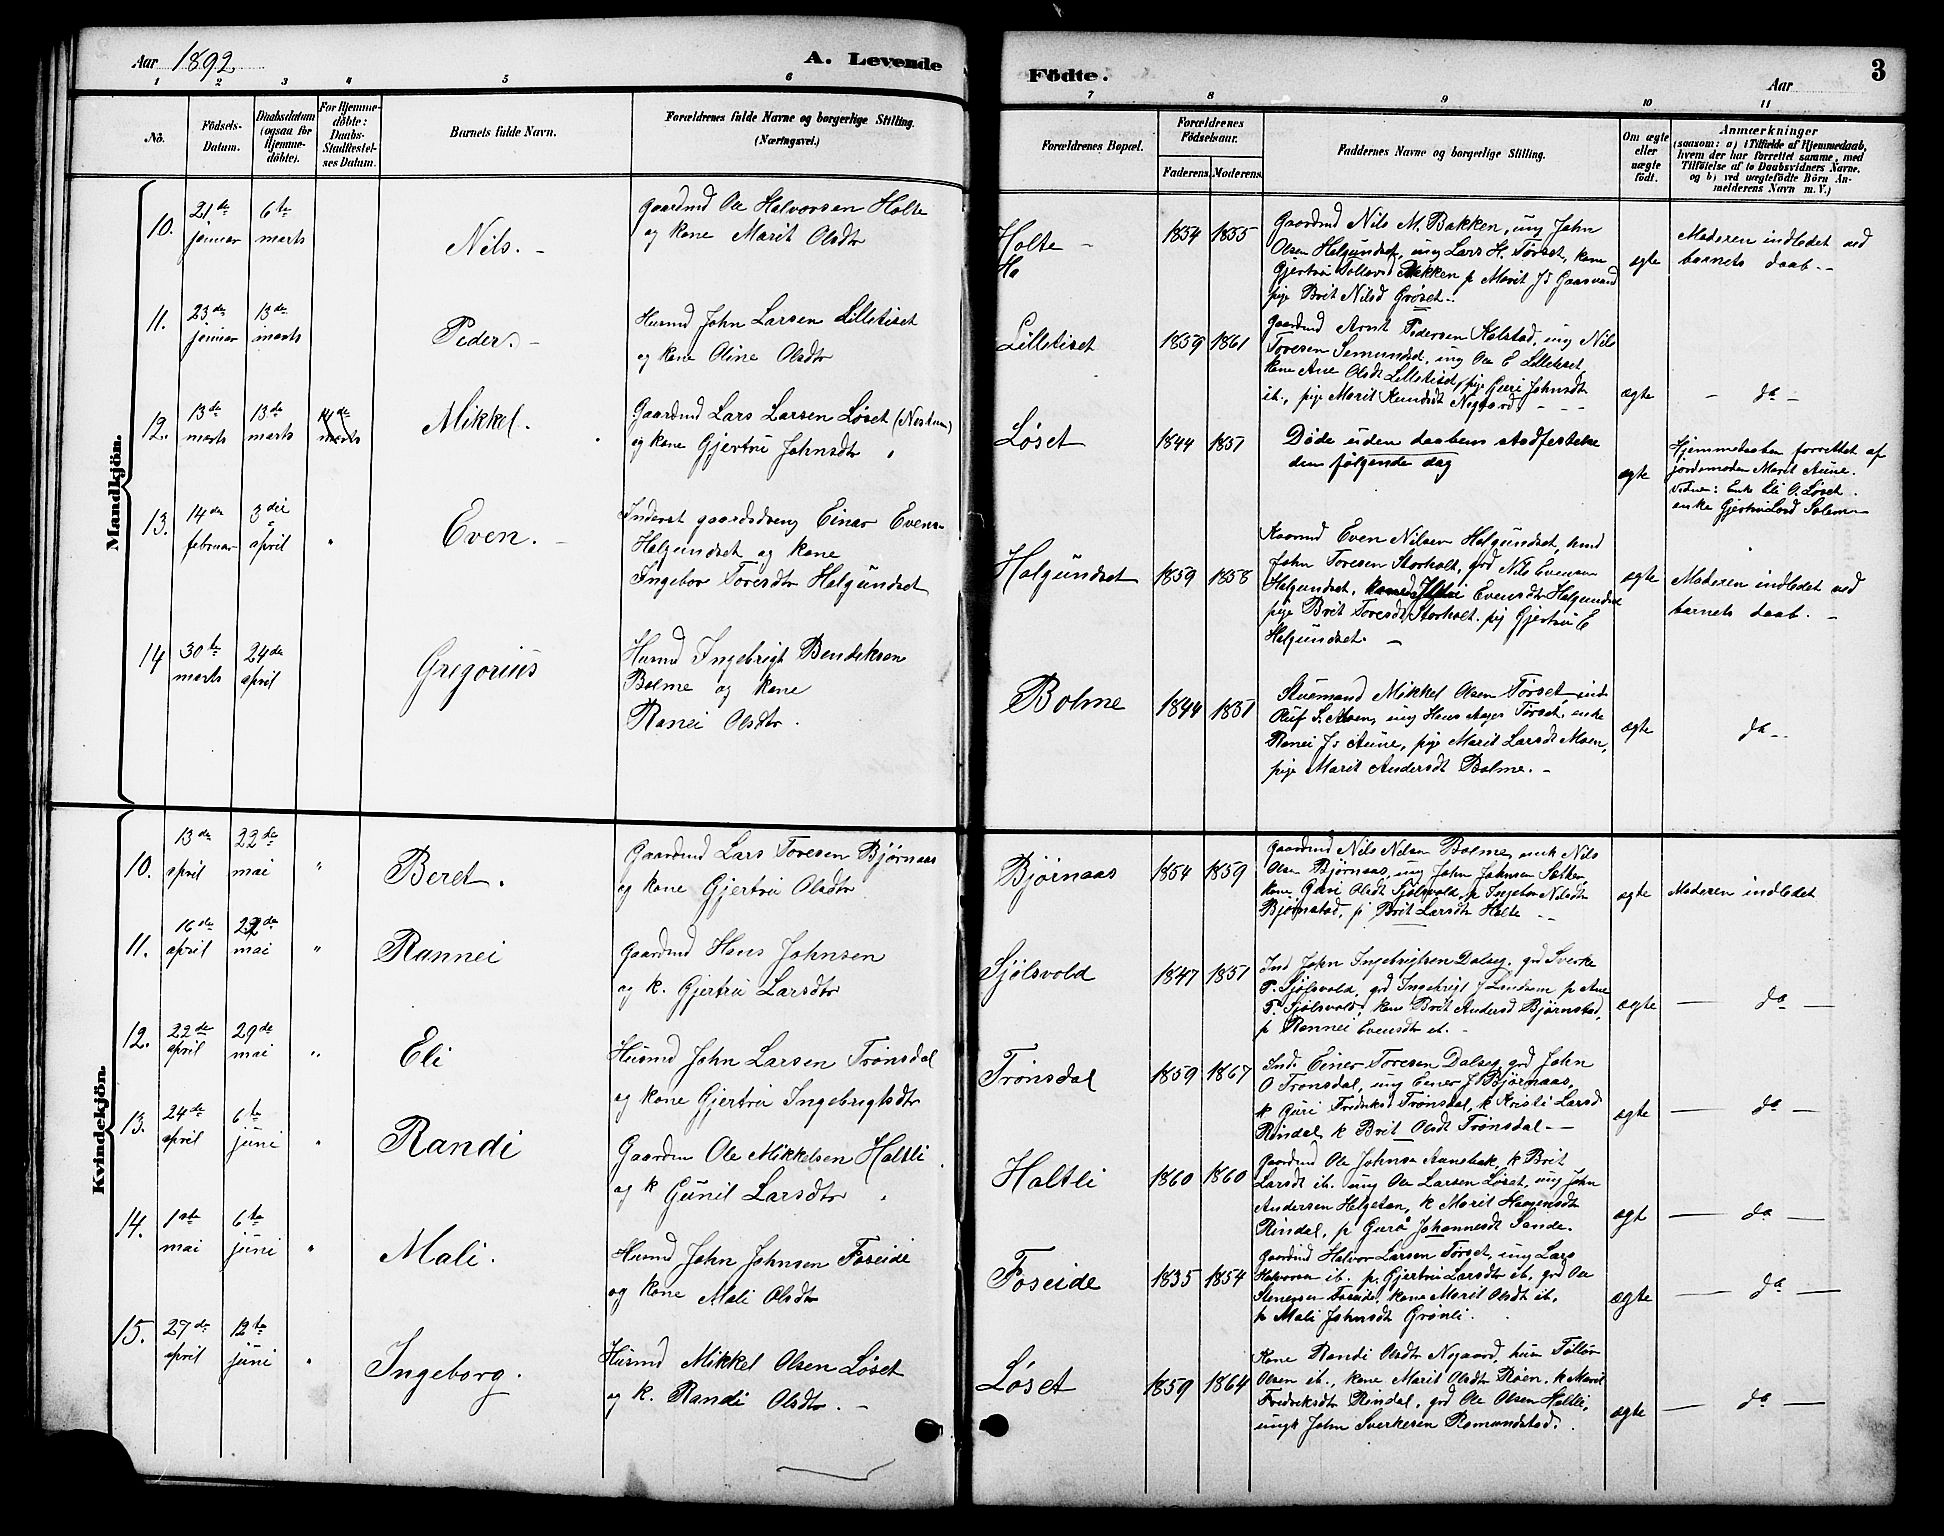 Aar 1892 A. Levende
1 2 3 4 5 6
No.
Födsels-
Datum.
Daabsdatum
(ogsaa for
Hjemme-
döbte).
For Hjemme-
döbte:
Daabs-
Stadfæstel-
ses Datum.
Barnets fulde Navn.
Forældrenes fulde Navne og borgerlige Stilling.
(Næringsvei.)
Födte. Aar 3
7 8 9 10 11
Forældrenes Bopæl.
Forældrenes
Födselsaar.
Faderens. Moderens.
Faddernes Navne og borgerlige Stilling.
Om ægte
eller
uægte
födt.
Anmærkninger
(saasom: a) i Tilfælde af Hjemmedaab,
hvem der har forrettet samme, med
Tilföielse af to Daabsvidners Navne,
og b) ved uægtefödte Börn An-
melderens Navn m. V.)
Mandkjön.
10. 21de januar 6te marts Nils. -
Gaardmd Ole Halvorsen Holte
og kone Marit Olsdtr
Holte -
Ho
1854 1855
Gaardmd Nils M. Bakken, ung John
Olsen Helgundset, ung Lars H. Tørset, kone
Gjertru Bakken p Marit
pige Brit Nilsd Grøset.
ægte
Moderen indledet ved
barnets daab. -
11. 23de januar 13de marts Peder. -
Husmd John Larsen Lilletiset
og kone Oline Olsdtr
Lilletiset 1859 1861
Gaardmd Arnt Pedersen Kalstad, ung Nils
Toresen Semundset, ung Ole E Lilletiset,
kone Ane Olsdt Lilletiset, pige Guri Johnsdt
ib., pige Marit Knudsdt Nygaard.
ægte - da -
12. 13de marts 13de marts 14de marts Mikkel.
Gaardmd Lars Larsen Løset (Nostun)
og kone Gjertru Johnsdtr
Løset 1844 1851
Døde uden daabens stadfestelse
den følgende dag
ægte
Hjemmedaaben forrettet af
jordemoder Marit Aune.
Vidner: Enke Eli O. Løset.
enke Gjertru Solem
13. 14de februar 3die april " Even. -
Inderst gaardsdreng Einar Evens-
Halgundset og kone
Ingebor Toresdtr Halgundset
Halgundset 1859 1858
Kaarmd Even Nilsen Halgundset, husmd
John Toresen Storholt, grd Nils Evensen
Halgundset, Evensdtr Halgundset
pige Brit Toresdt Storholt. pig Gjertru E
Halgundset. -
ægte
Moderen indledet ved
barnets daab. -
14 30te marts 24de april Gregorius
Husmd Ingebrigt Bendiksen
Bolme og kone
Ranei Olsdtr.
Bolme 1844 1851
Stuemand Mikkel Olsen Tørset, ind
Oluf S. Moen, ung Hans Tørset, enke
Ranei Js Aune, pige Marit Larsdt Moen,
pige Marit Andersdt Bolme. -
ægte da -
Kvindekjön.
10. 13de april 22de mai " Beret.
Gaardmd Lars Toresen Bjørnaas
og kone Gjertru Olsdtr
Bjørnaas 1854 1859
Gaardmd Nils Nilsen Bolme, Nils
Olsen Bjørnaas, ung John Johnsen Sæther,
kone Guri Olsdt Sjølsvold, p Ingebor Nilsdtr
Bjørnstad, p Brit Larsdtr Holte -
ægte Moderen indledet
11. 16de april 22de mai " Rannei
Gaardmd Hans Johnsen
og k. Gjertru Larsdtr
Sjølsvold 1847 1851
Ind John Ingebrigtsen Dalseg, grd Sverke
P. Sjølsvold, grd Ingebrigt J Landsem p Ane
T. Sjølsvold, kone Brit Andersd Bjørnstad,
p Rannei Evensdtr ib. -
ægte - da -
12. 22de april 29de mai " Eli
Husmd John Larsen Trønsdal
og kone Gjertru Ingebrigtsdtr
Trønsdal 1859 1867
Ind. Einer Toresen Dalseg, grd John
O Trønsdal, ung Einer J Bjørnaas,
k Guri Fredriksd Trønsdal, k Kristi Larsd
Rindal, k Brit Olsdt Trønsdal - -
ægte - da -
13. 24de april 6te juni " Randi
Gaardm Ole Mikkelsen Holtli.
og k Gunil Larsdtr
Holtli 1860 1860
Gaardmd Ole Johnsen Aunebak, k Brit
Larsdt ib. ung Ole Larsen Løset, ung John
Andersen Helgetun, k Marit Haagensdt
Rindal, p Guro Johannesdt Sande.
ægt - da -
14. 1ste mai 6te juni " Mali.
Husmd John Johnsen Foseide
og kone Mali Olsdtr
Foseide 1835 1854
Gaardmd Halvor Larsen Tørset, ung Lars
Halvorsen ib. p. Gjertru Larsdtr ib., grd Ole
Stenersen Foseide, kone Marit Olsdt ib.
p Mali Johnsdt Grønli.
ægte - da -
15. 27de april 12te juni " Ingeborg.
Husmd Mikkel Olsen Løset
og k. Randi Olsdtr. -
Løset 1859 1864
Kone Randi Olsdtr Nygaard, husm Tollev
Olsen ib., kone Marit Olsdtr Røen. k Marit
Fredriksdtr Rindal, grd Ole Olsen Holtli,
ungk John Sverkesen Romundstad.
ægte - da -